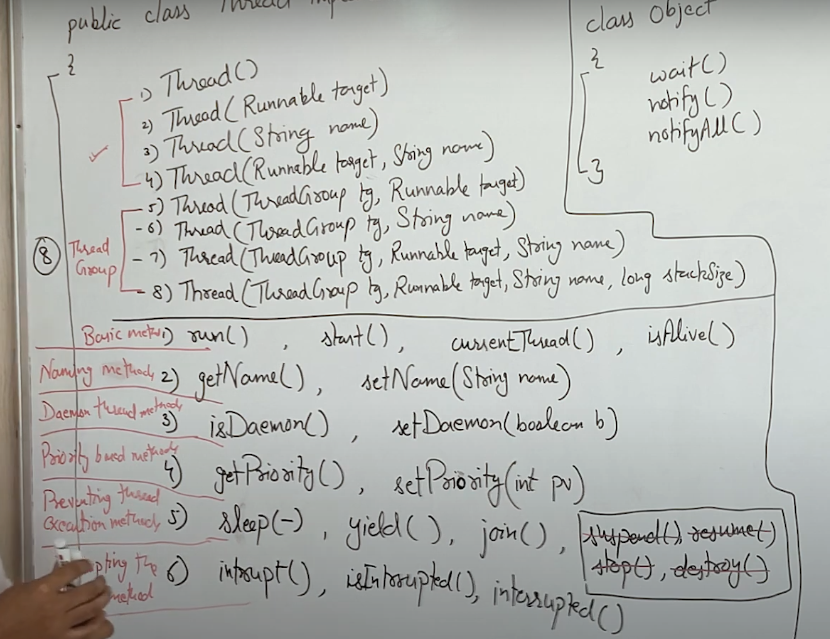 public class Thread
{
1) Thread()
2) Thread(Runnable target)
3) Thread(String name)
4) Thread(Runnable target, String name)
Thread Group
5) Thread(ThreadGroup tg, Runnable target)
6) Thread(ThreadGroup tg, String name)
7) Thread(ThreadGroup tg, Runnable target, String name)
8) Thread(ThreadGroup tg, Runnable target, String name, long stackSize)
8
class Object
{
wait()
notify()
notifyAll()
}
Basic 1) run(), start(), currentThread(), isAlive()
Naming methods 2) getName(), setName(String name)
Daemon thread methods 3) isDaemon(), setDaemon(boolean b)
Priority based methods 4) getPriority(), setPriority(int pv)
Preventing thread
execution methods 5) sleep(-), yield(), join(), suspend(), resume()
stop(), destroy()
the 6) intrupt(), isIntrrupted(), interrupted()
method